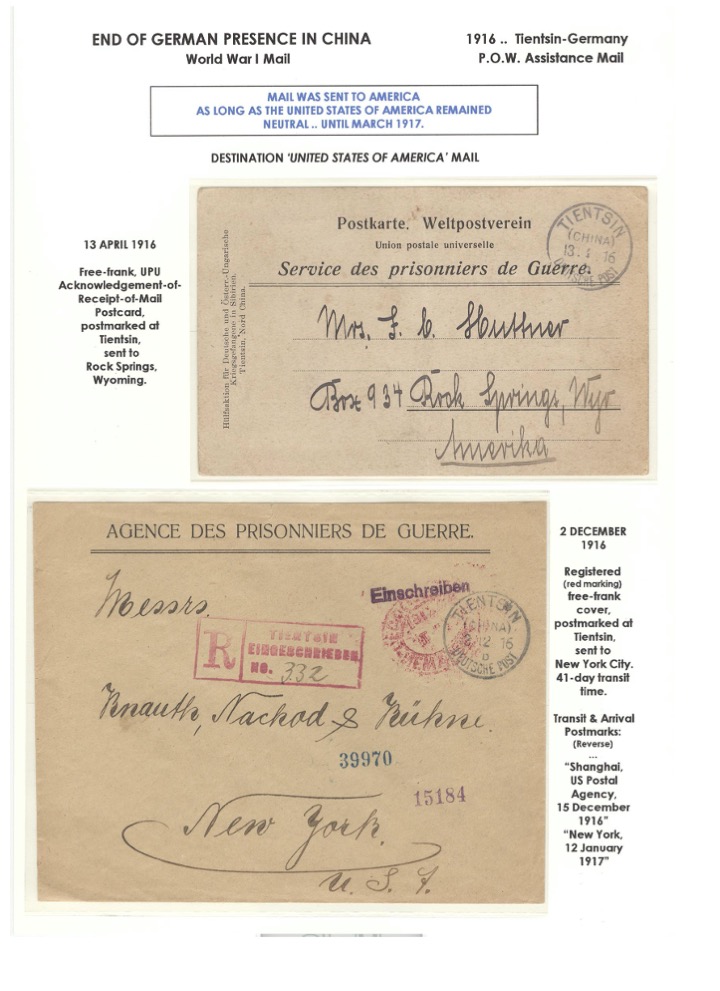 END OF GERMAN PRESENCE IN CHINA
World War I Mail
1916 .. Tientsin-Germany
P.O.W. Assistance Mail
MAIL WAS SENT TO AMERICA
AS LONG AS THE UNITED STATES OF AMERICA REMAINED
NEUTRAL .. UNTIL MARCH 1917.
DESTINATION 'UNITED STATES OF AMERICA' MAIL
13 APRIL 1916
Free-frank, UPU
Acknowledgement-of-
Receipt-of-Mail
Postcard,
postmarked at
Tientsin,
sent to
Rock Springs,
Wyoming.
Hülfsaktion für Deutsche und Österr.-Ungarische
Kriegsgefangene in Sibirien.
Tientsin, Nord China.
Postkarte. Weltpostverein
Union postale universelle
Service des prisonniers de Guerre.
TIENTSIN
(CHINA)
16
DEUTSCHE POST
Mrs. F. C. Huttner
Box 934 Rock Springs, Wyo
Amerika
AGENCE DES PRISONNIERS DE GUERRE.
Messrs.
Einschreiben
TIENTSIN
(CHINA)
12 16
DEUTSCHE POST
R
TIENTSIN
EINGESCHRIEBEN
No. 332
Knauth, Nachod & Kühne.
39970
15184
New York.
U. S. A.
2 DECEMBER
1916
Registered
(red marking)
free-frank
cover,
postmarked at
Tientsin,
sent to
New York City.
41-day transit
time.
Transit & Arrival
Postmarks:
(Reverse)
...
"Shanghai,
US Postal
Agency,
15 December
1916"
"New York,
12 January
1917"